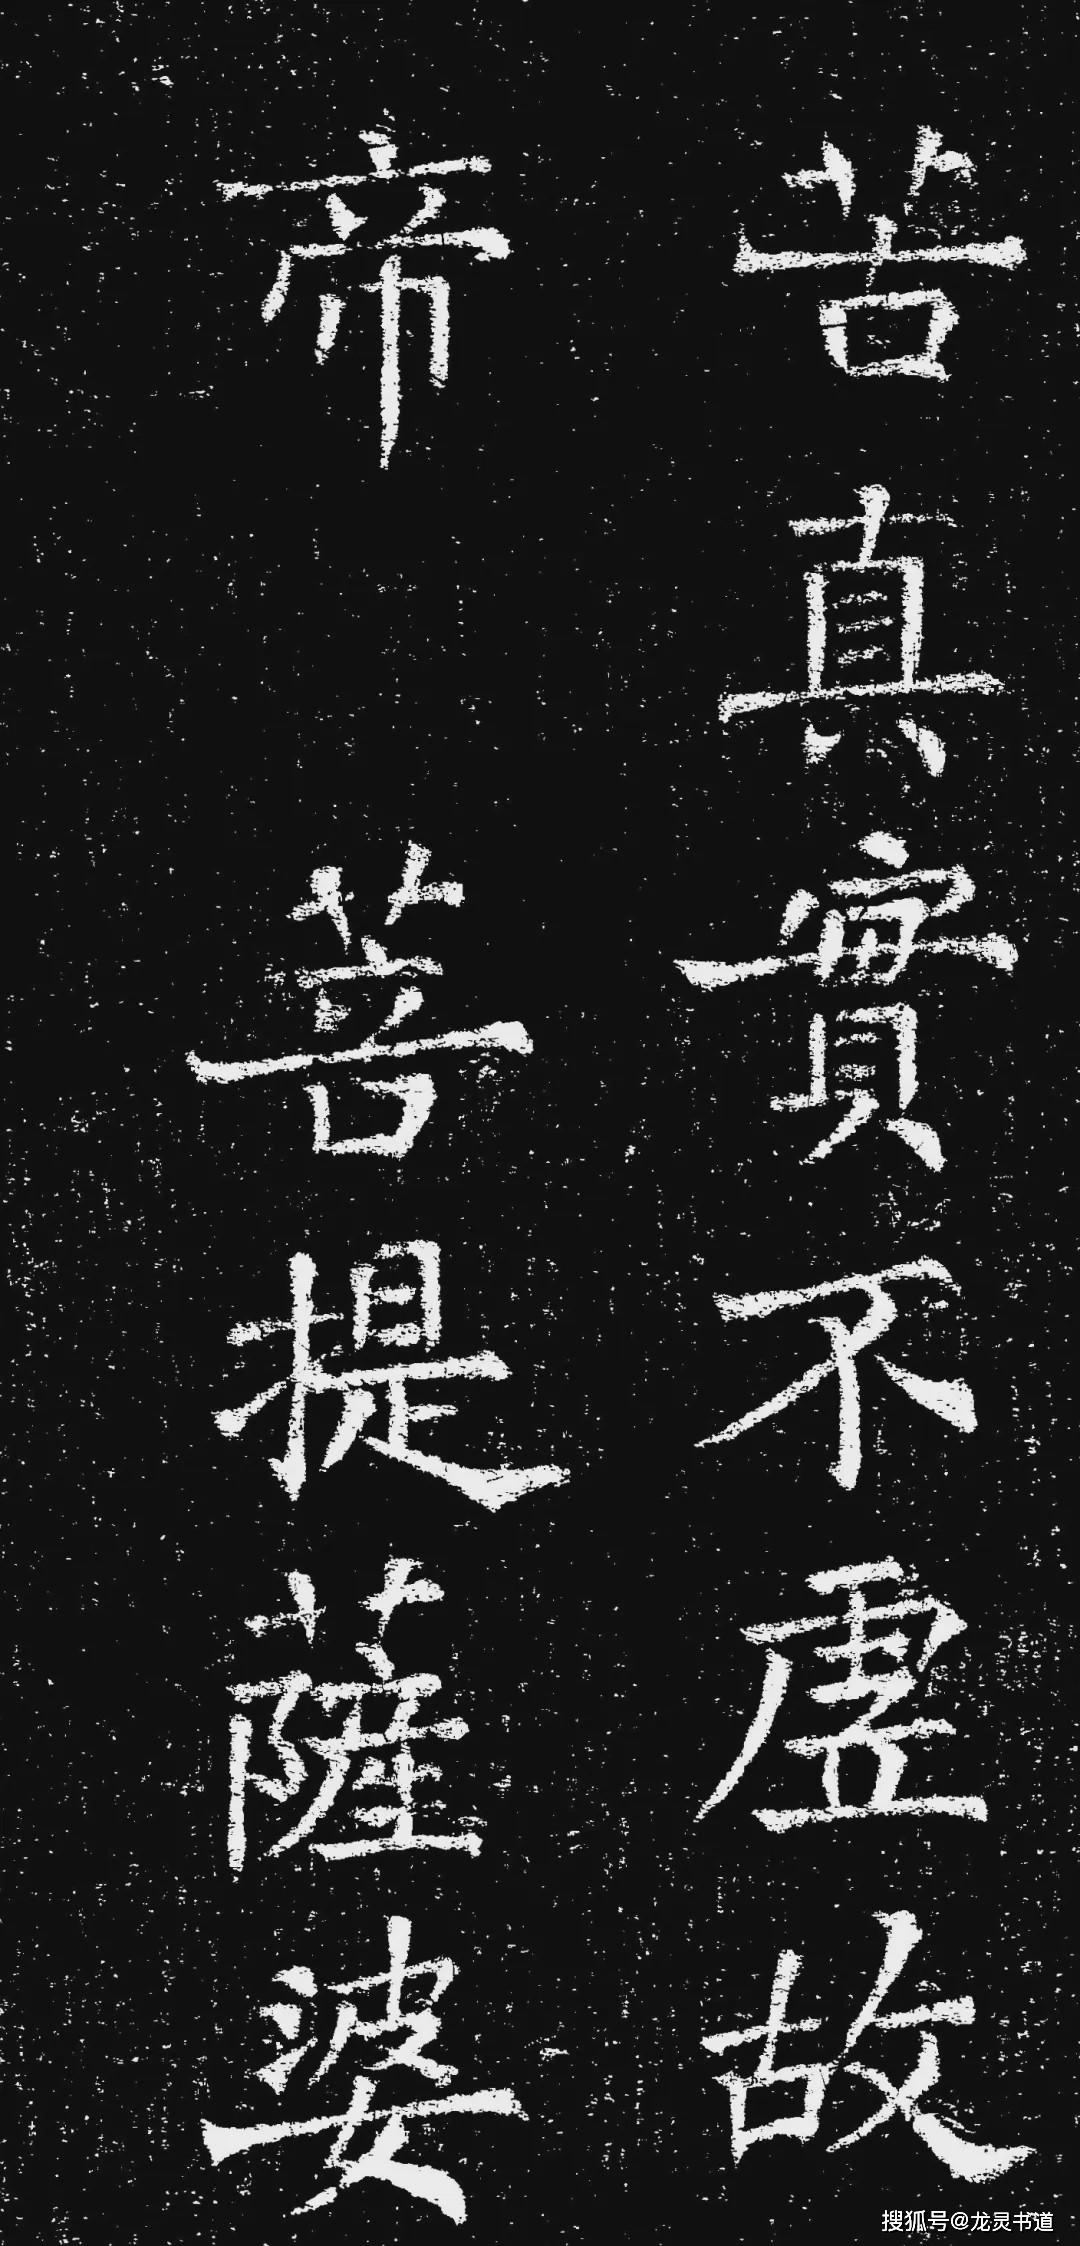 苦真實不虛故
帝 菩提薩婆
搜狐号@龙灵书道